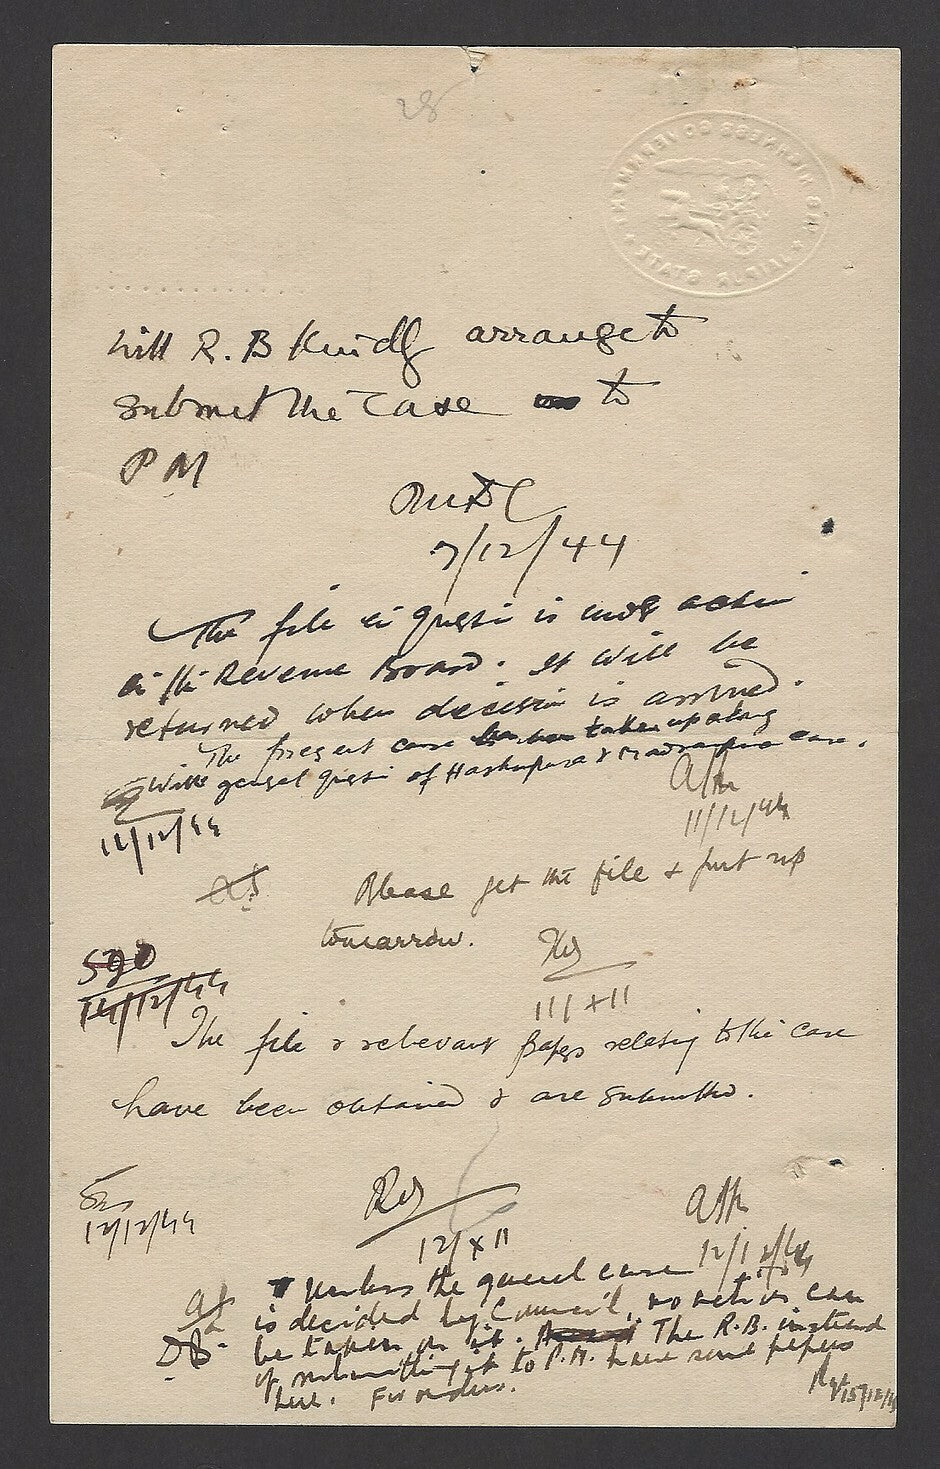 28
HIS HIGHNESS GOVERNMENT
JAIPUR STATE
Will R.B Kindly arrange to
submit the case to
P M
7/12/44
The file in questi is under action
in the Revenue Board. It will be
returned when decision is arrived.
The present case has been taken up along
with general questi of Hasthpura & case.
11/12/44
11/12/44
Please get the file & put up
tomorrow.
11/XII
14/12/44
The file & relevant papers relating to the case
have been obtained & are submitted.
12/12/44
12/XII
12/12/44
Unless the general case
is decided by Council, no action can
be taken on it. The R.B. instead
of submitting it to P.M. have sent papers
here. For orders.
15/12/44